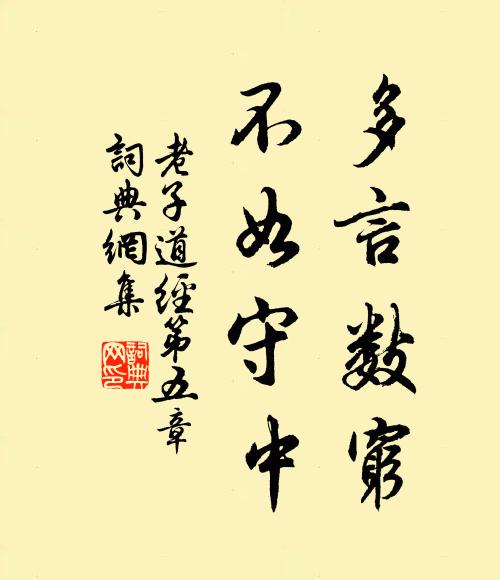 多言數窮
不如守中
老子道經第五章
詞典網集
詞典
网印